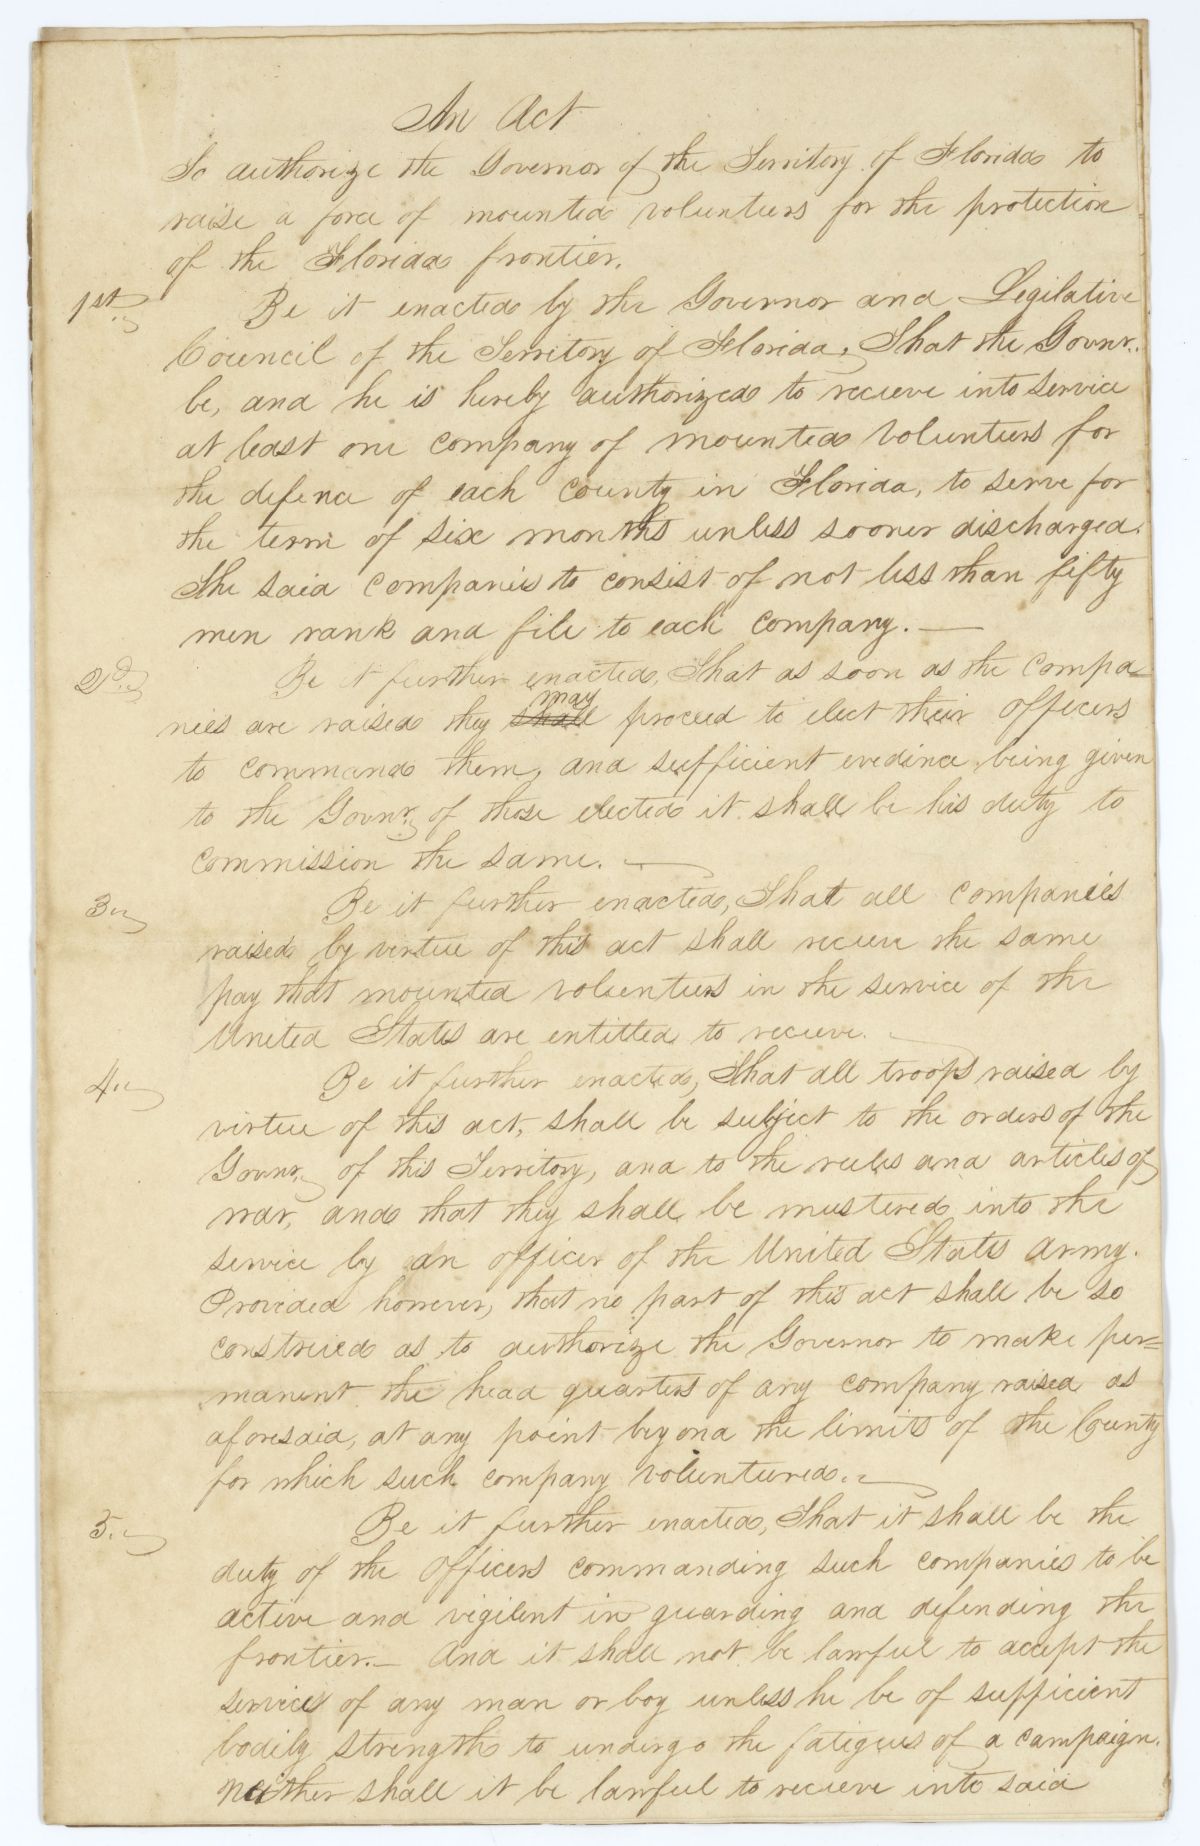 An Act
To authorize the Governor of the Territory of Florida to
raise a force of mounted volunteers for the protection
of the Florida frontier.
1st. Be it enacted by the Governor and Legilative
Council of the Territory of Florida, That the Govnr.
be, and he is hereby authorized to recieve into service
at least one company of mounted volunteers for
the defence of each county in Florida, to serve for
the term of six months unless sooner discharged.
The said companies to consist of not less than fifty
men rank and file to each company. —
2d. Be it further enacted, That as soon as the compa-
may
nies are raised they shall proceed to elect their officers
to command them, and sufficient evedince being given
to the Govnr. of those elected it shall be his duty to
commission the same. —
3. Be it further enacted, That all companies
raised by virtue of this act shall recieve the same
pay that mounted volunteers in the service of the
United States are entitled to recieve.
4. Be it further enacted, That all troops raised by
virtue of this act, shall be subject to the orders of the
Govnr. of this Territory, and to the rules and articles of
war, and that they shall be mustered into the
service by an officer of the United States Army.
Provided however, that no part of this act shall be so
construed as to authorize the Governor to make per=
manent the head quarters of any company raised as
aforesaid, at any point beyond the limits of the County
for which such company voluntured. —
5. Be it further enacted, That it shall be the
duty of the officers commanding such companies to be
active and vigilent in guarding and defending the
frontier. — And it shall not be lawful to accept the
services of any man or boy unless he be of sufficient
bodily strength to undergo the fatigues of a campaign.
Neither shall it be lawful to recieve into said